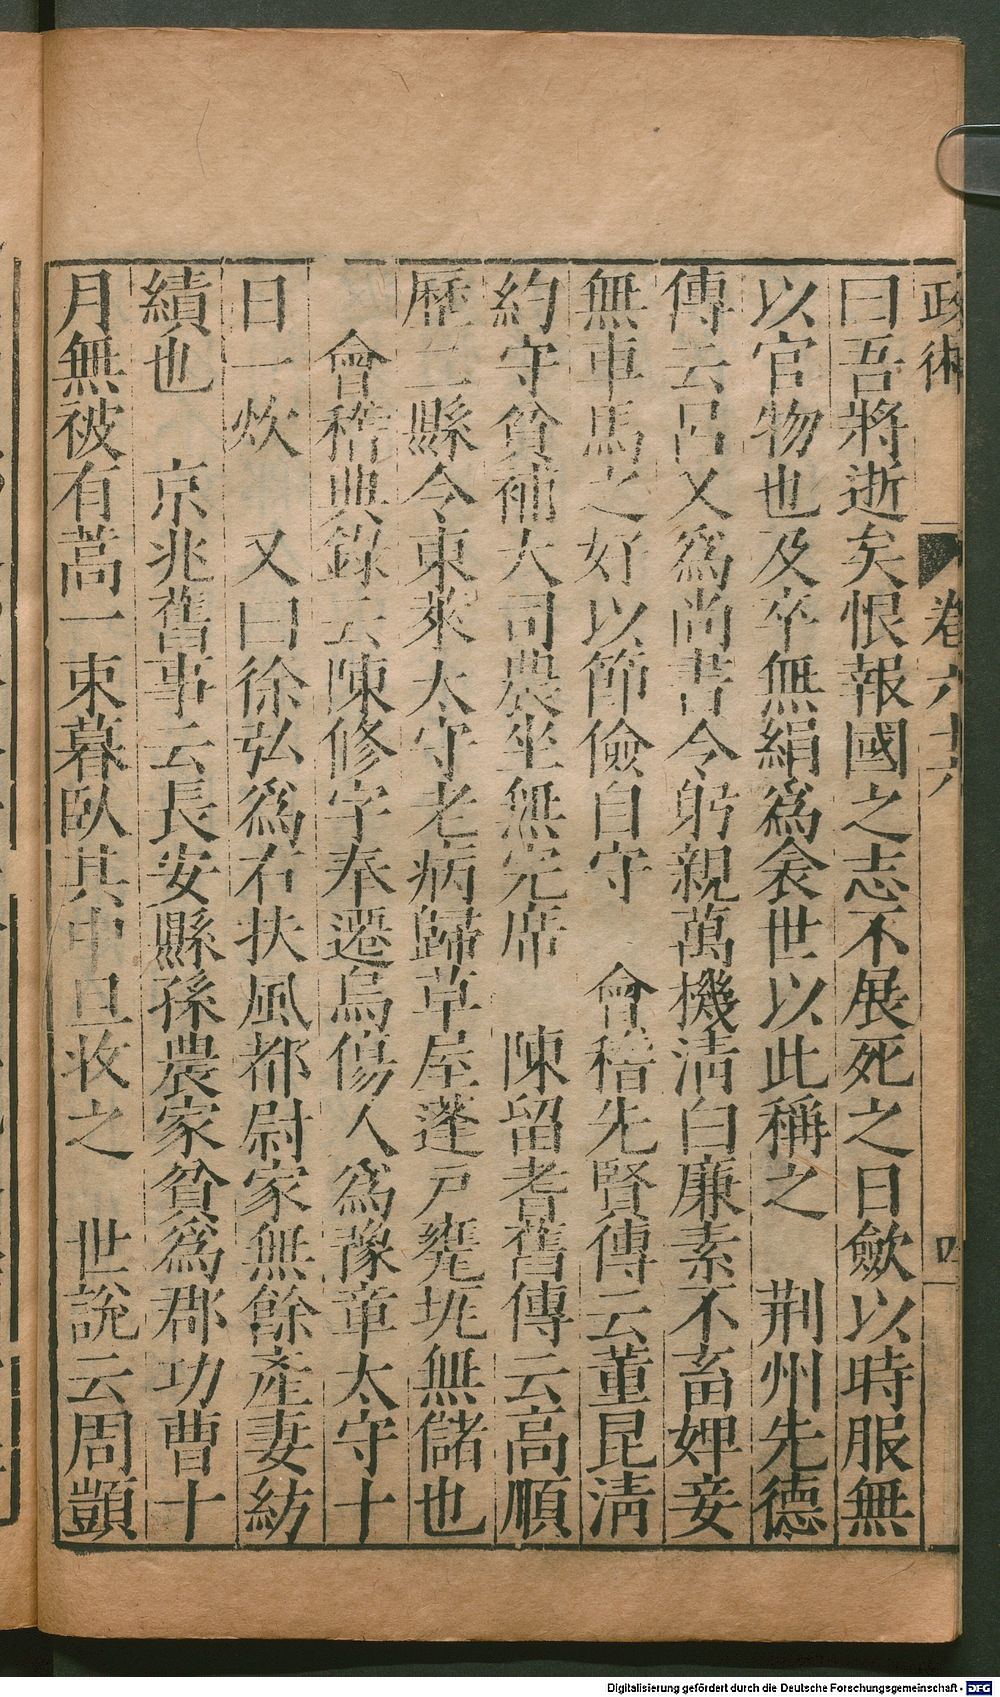 政術 卷六十六 四
曰吾將逝矣恨報國之志不展死之日歛以時服無
以官物也及卒無絹爲衾世以此稱之 荆州先德
傳云呂乂爲尚書令躬親萬機淸白廉素不畜婢妾
無車馬之好以節儉自守 會稽先賢傳云董昆淸
約守貧補大司農坐無完席 陳留耆舊傳云高順
歷二縣令東萊太守老病歸草屋蓬戸甕牖無儲也
會稽典錄云陳修字奉遷烏傷人爲豫章太守十
日一炊 又曰徐弘爲右扶風都尉家無餘產妻紡
績也 京兆舊事云長安縣孫農家貧爲郡功曹十
月無被有蒿一束暮臥其中旦收之 世說云周顗
Digitalisierung gefördert durch die Deutsche Forschungsgemeinschaft - DFG